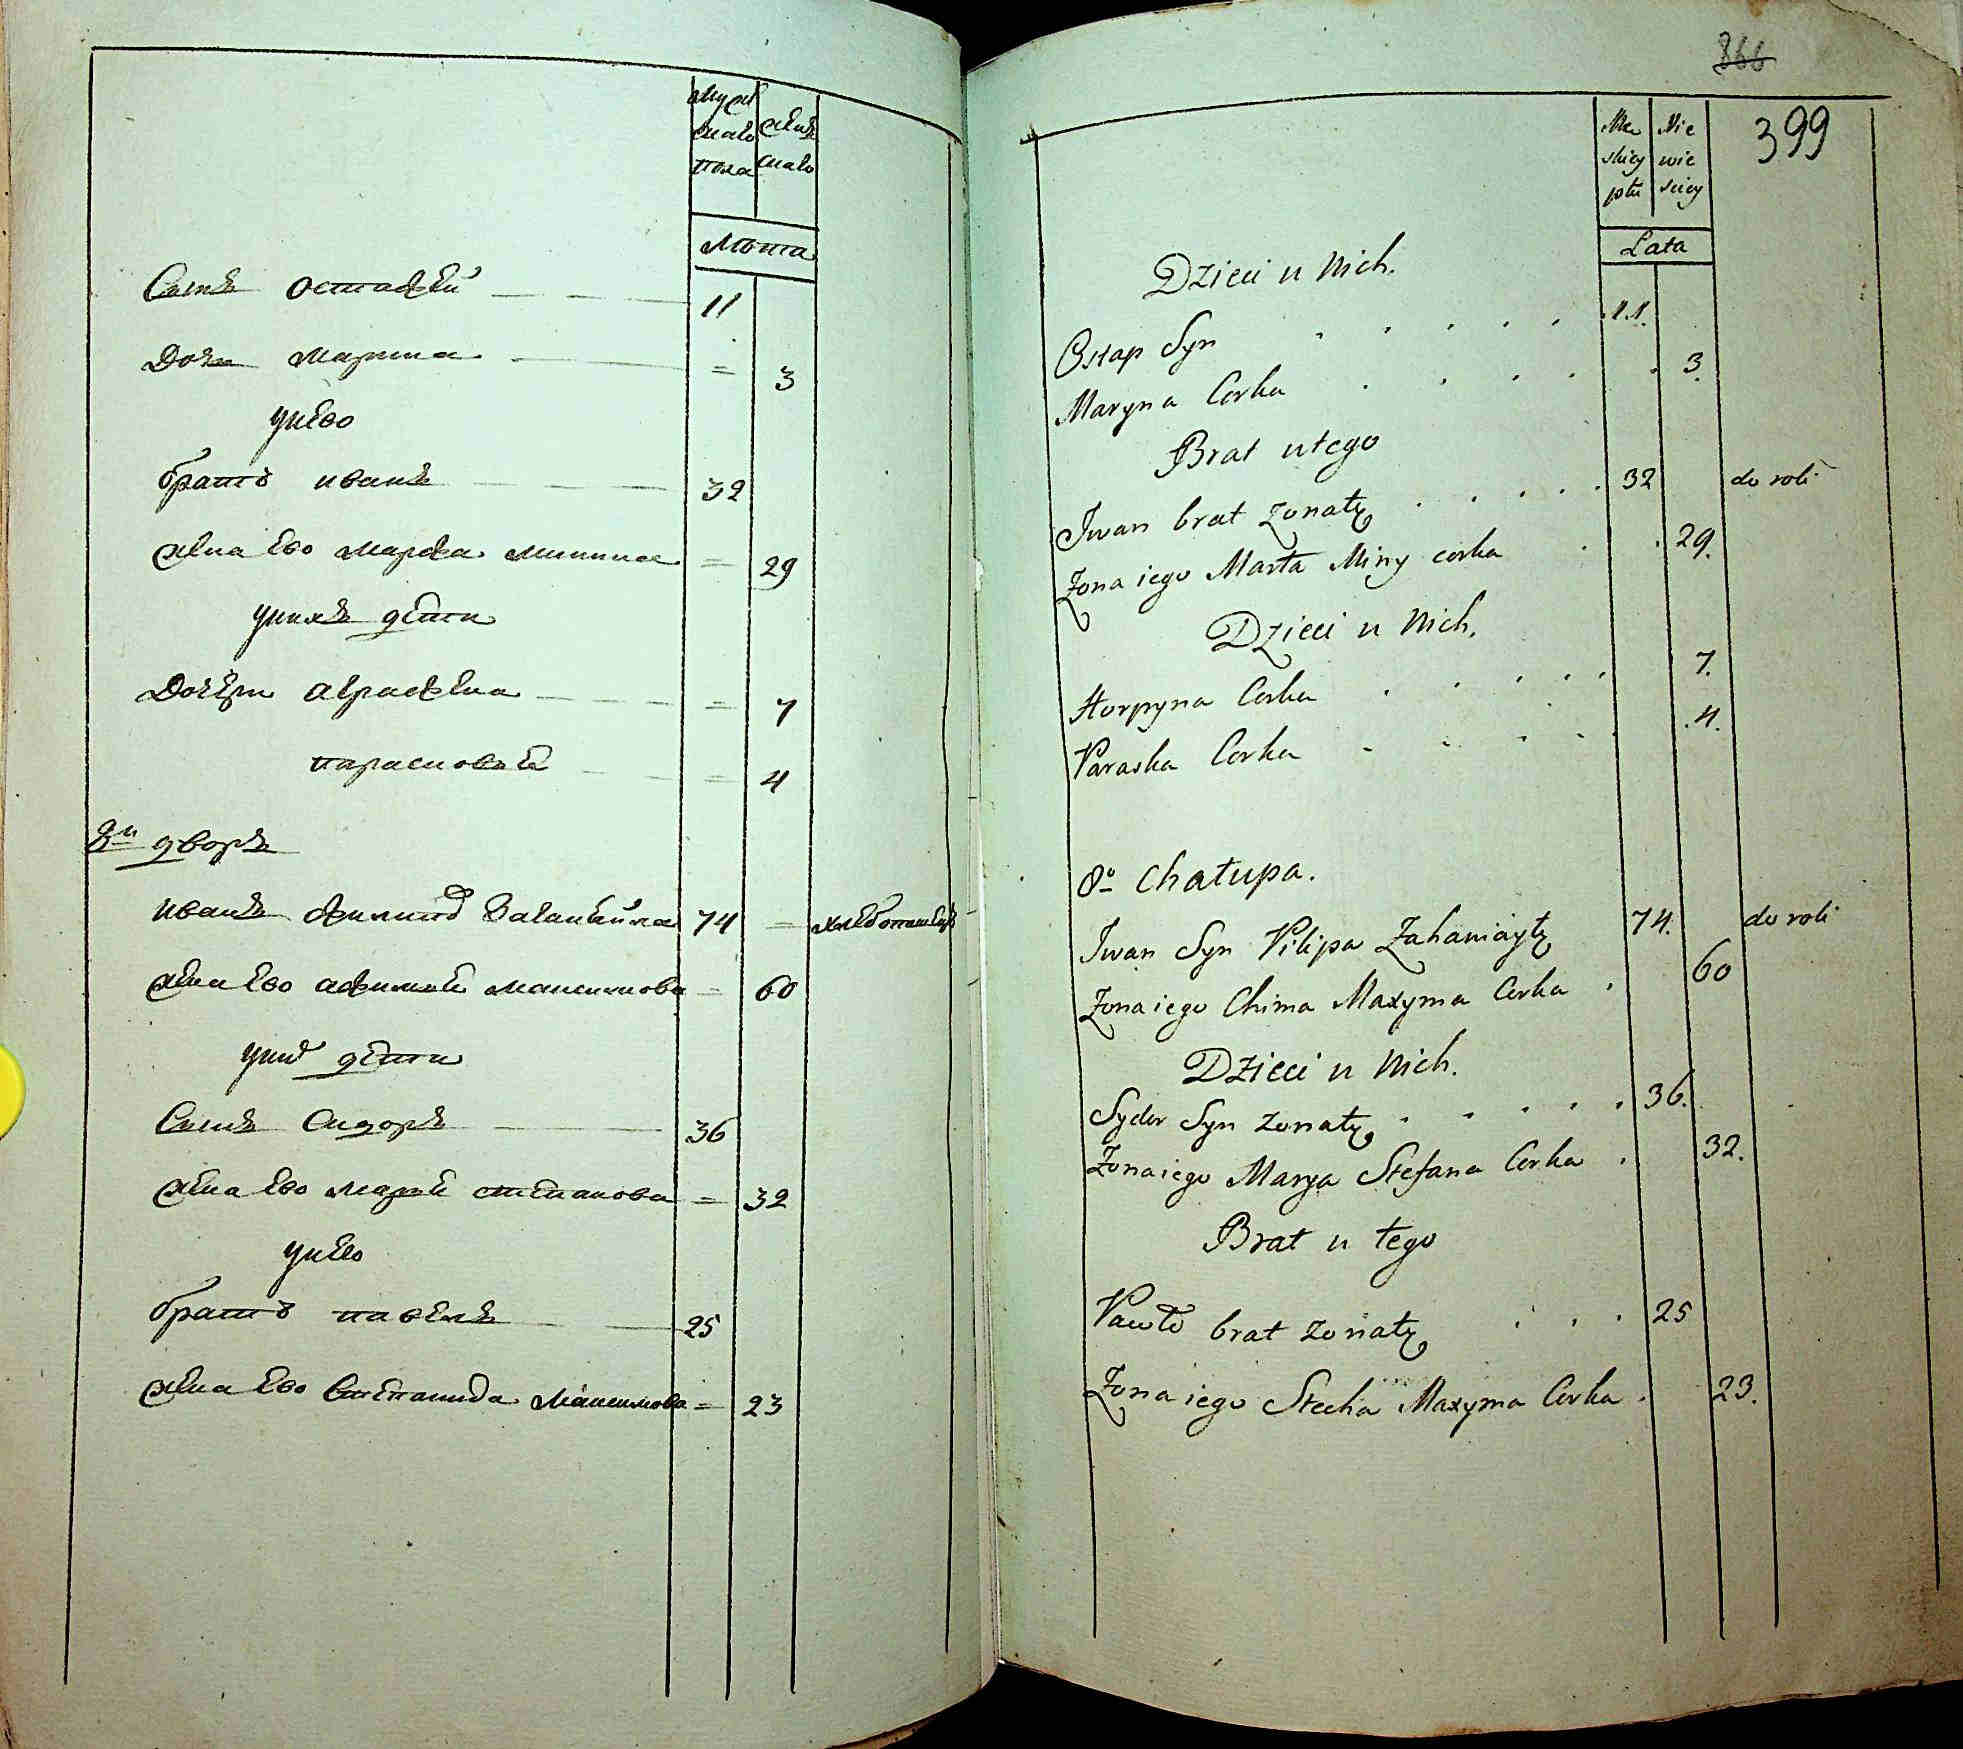 мужеска пола
женска
Лѣта
Сынъ Остафей 11
Дочь Марина = 3
у нево
братъ иванъ 32
жена ево марфа минина = 29
у нихъ дѣти
Дочери аграфена = 7
парасковья = 4
8й дворъ
иванъ филипов 74 = хлебопашецъ
жена ево афимья максимова = 60
у них дѣти
Сынъ Сидоръ 36
жена ево марья степанова = 32
у нево
братъ павелъ 25
жена ево Степанида Максимова = 23
866
399
Męskiey płci
Niewieściey
Lata
Dzieci u Nich.
Ostap Syn 11.
Maryna Corka 3.
Brat u tego
Iwan brat żonaty 32 do roli
Żona iego Marta Miny corka 29.
Dzieci u Nich.
Horpyna Corka 7.
Paraska Corka 4.
8o Chałupa.
Iwan Syn Filipa 74. do roli
Żona iego Chima Maxyma Corka 60
Dzieci u Nich.
Sydor Syn żonaty 36.
Żona iego Marya Stefana Corka 32.
Brat u tego
Pawło brat żonaty 25
Żona iego Stecha Maxyma Corka 23.